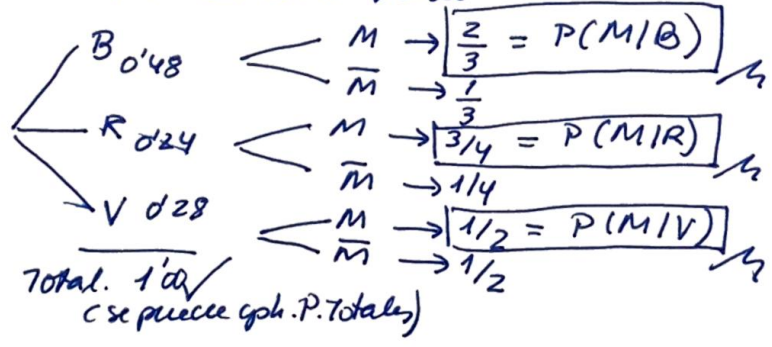 B 0'48 M → 2/3 = P(M/B)
M̅ → 1/3
R 0'24 M → 3/4 = P(M/R)
M̅ → 1/4
V 0'28 M → 1/2 = P(M/V)
M̅ → 1/2
Total. 1'00
(se puede P. Totales)